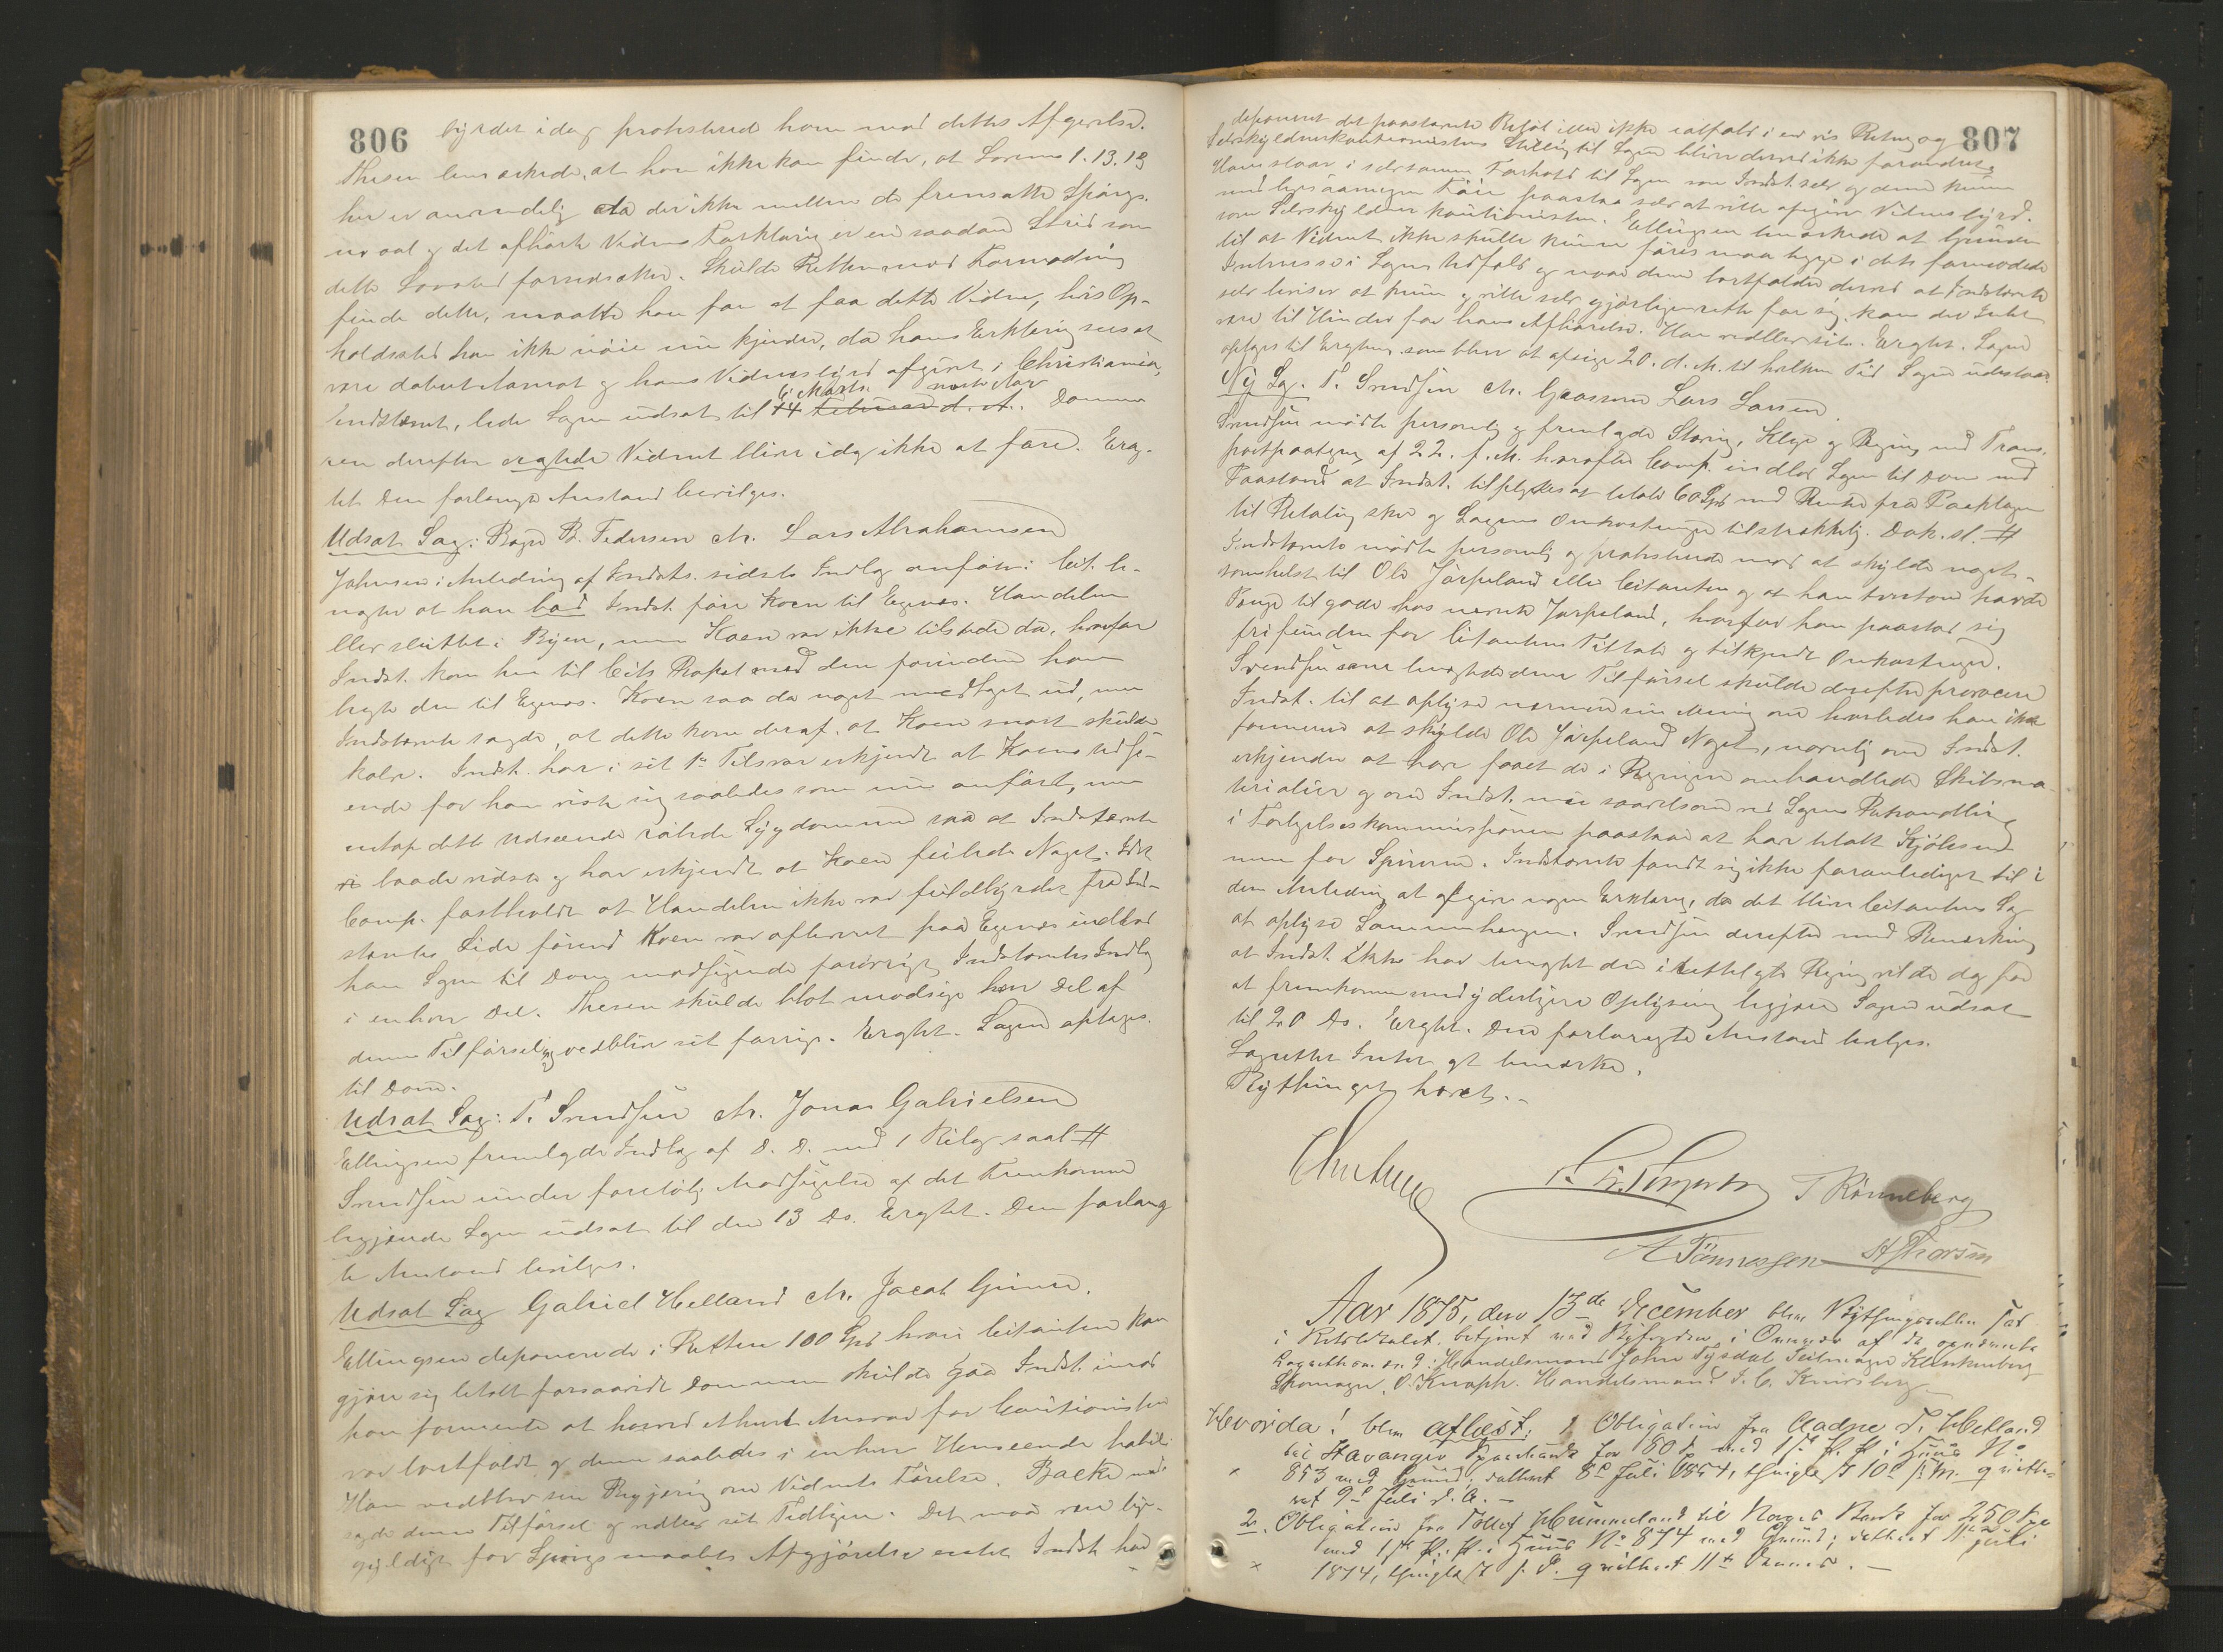 806
byrdet idag protesterede han mod dettes Afgivelse.
Thesen bemærkede, at han ikke kan finde, at Lovens 1. 13. 19
her er anvendelig da der ikke mellem de fremsatte Spørgs-
maal og det afhørte Vidnes Forklaring er en saadan Strid som
dette Lovsted forudsætter. Skulde Retten mod Formodning
finde dette, maatte han faa at faa dette Vidne, hvis Op-
holdssted han ikke nøie nu kjender, da hans Erklæring sees at
være dateret Samat og hans Vidnesbyrd afgivet i Christiania,
6 Marts næste Aar
Indstævnt, bede Sagen udsat til 14 Februar d. A. Dommer
ren derefter eragtede Vidnet bliver idag ikke at føre. Erag-
tet Den forlangte Anstand bevilges.
Udsat Sag: Bager B. Pedersen ctr. Lars Abrahamsen
Johnsen i Anledning af Indsts. sidste Indlæg anførte: Cit. be-
nægter at han bad Indst. føre Koen til Egenes. Handelen
blev sluttet i Byen, men Koen var ikke tilstede da, hvorfor
Indst. kom hen til Cits Bopæl med den forinden han
bragte den til Egenes. Koen saa da noget medtaget ud, men
Indstævnte sagde, at dette kom deraf, at Koen snart skulde
kalve. Indst. har i sit 1ste Tilsvar erkjendt at Koens Udse-
ende før han viste sig saaledes som nu anført, men
netop dette Udseende røbede Sygdommen saa at Indstævnte
baade vidste og har erkjendt at Koen feilede Noget. Idet
Comp. fastholdt at Handelen ikke var fuldbyrdet fra Ind-
stævntes Side førend Koen var afleveret paa Egenes indlod
han Sagen til Doms modsigende forøvrigt Indstævntes Indlæg
i enhver Del. Thesen skulde blot modsige hver Del af
denne Tilførsel og vedblive sit forrige. Eragtet. Sagen optages
til Dom.
Udsat Sag: T. Svendsen ctr. Jonas Gabrielsen
Ellingsen fremlagde Indlæg af D. D. med 1 Bilag saal. #
Svendsen under foreløbig Modsigelse af det Fremkomne
begjærede Sagen udsat til den 13 ds. Eragtet. Den forlang
te Anstand bevilges.
Udsat Sag Gabriel Helland ctr. Jacob Gjemre.
Ellingsen deponerede i Retten 100 Spd hvori Citanten kan
gjøre sig betalt forsaavidt Dommen skulde gaa Indst. imod
han formente at herved ethvert Ansvar for Cautionisten
var bortfaldt og denne saaledes i enhver Henseende habil.
Han vedblev sin Begjæring om Vidnets Førelse. Backe mod-
sagde denne Tilførsel og vedblev sit Tidligere. Det maa være lige-
gyldigt for Spørgsmaalets Afgjørelse enten Indst. har
807
deponeret det paastævnte Beløb eller ikke ialfald i en vis Retning og
Selvskyldnerkautionistens Stilling til Sagen bliver derved ikke forandret,
Han staar i selvsamme Forhold til Sagen som Indst. selv og denne kunne
med ligesaamegen Føie paastaa selv at ville afgive Vidnesbyrd
som Selvskyldnerkautionisten. Ellingsen bemærkede at Grunden
til at Vidnet ikke skulde kunne føres maa ligge i dets formodede
Interesse i Sagens Udfald og naar denne bortfalder derved at Indstævnte
selv beviser at kunne og ville selv gjøre ligeret for sig, kan det Intet
være til Hinder for hans Afhørelse. Han vedblev sit. Eragtet. Sagen
optages til Eragtning som bliver at afsige 20. d. M. til hvilken Tid Sagen udestaar.
Ny Sag. T. Svendsen ctr. Graasten Lars Larsen.
Svendsen mødte personlig og fremlagde Stævning, Klage og Regning med Trans-
portpaategning af 22. f. M. hvorefter Comp. indlod Sagen til Dom med
Paastand at Indst. tilpligtes at betale 60 Spd med Renter fra Forkl.
til Betaling sker og Sagens Omkostninger tilstrækkelig. Dok. sl. #
Indstævnte mødte personlig og protesterede mod at skylde noget-
somhelst til Ole Jørpeland eller Citanten og at han tvertom havde
Penge tilgode hos nævnte Jørpeland, hvorfor han paastod sig
frifunden for Citantens Tiltale og tilkjendt Omkostninger.
Svendsen som benægtede denne Tilførsel skulde derefter provocere
Indst. til at oplyse nærmere sin Mening om hvorledes han ikke
formener at skylde Ole Jørpeland Noget, navnlig om Indst.
erkjender at have faaet de i Regningen omhandlede Skibsma-
terialier og om Indst. nu saavelsom ved Sagens Behandling
i Forligelseskommissionen paastaar at have betalt Kjøbesum
men for Spirerne. Indstævnte fandt sig ikke foranlediget til i
den Anledning at afgive nogen Erklæring, da det bliver Citantens Sag
at oplyse Sammenhængen. Svendsen derefter med Bemærkning
at Indst. ikke har benægtet den ibeftelgte Regning vilde dog for
at fremkomme med yderligere Oplysning begjære Sagen udsat
til 20 ds. Eragtet. Den forlangte Anstand bevilges.
Lagrettet Intet at bemærke.
Bythinget hævet.-
T Rønneberg
A Tønnesen
St Thorsen
Aar 1875, den 13de December blev Bythingsretten sat
i Retslokalet betjent ved Byfogden i Overvær af de opnævnte
Lagrettesmænd: Handelsmand John Tysdal Seilmager Klinkenberg
Skomager O. Knoph. Handelsmand J. C. Kinsberg
Hvorda! blev aflæst: 1 Obligation fra Aadne T. Helland
til Stavanger Sparebank for 80 S med 1ste Pr. Pt. i Huus No
853 med Grund, dateret 8de Juli 1854, thinglæst 10de s. M. qvitte-
ret 9de Juli d. A. -
2. Obligation fra Tollef Hummeland til Norges Bank for 250 Spd
med 1ste Pr. Pt. i Huus No 874 med Grund; dateret 11te Juli
1874, thinglæst s. D. qvitteret 11te Dennes. -